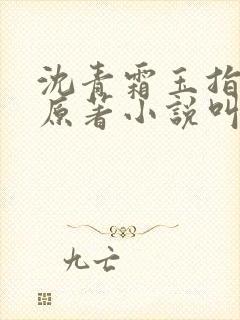 沈青霜玉指
原著小説叫
九亡